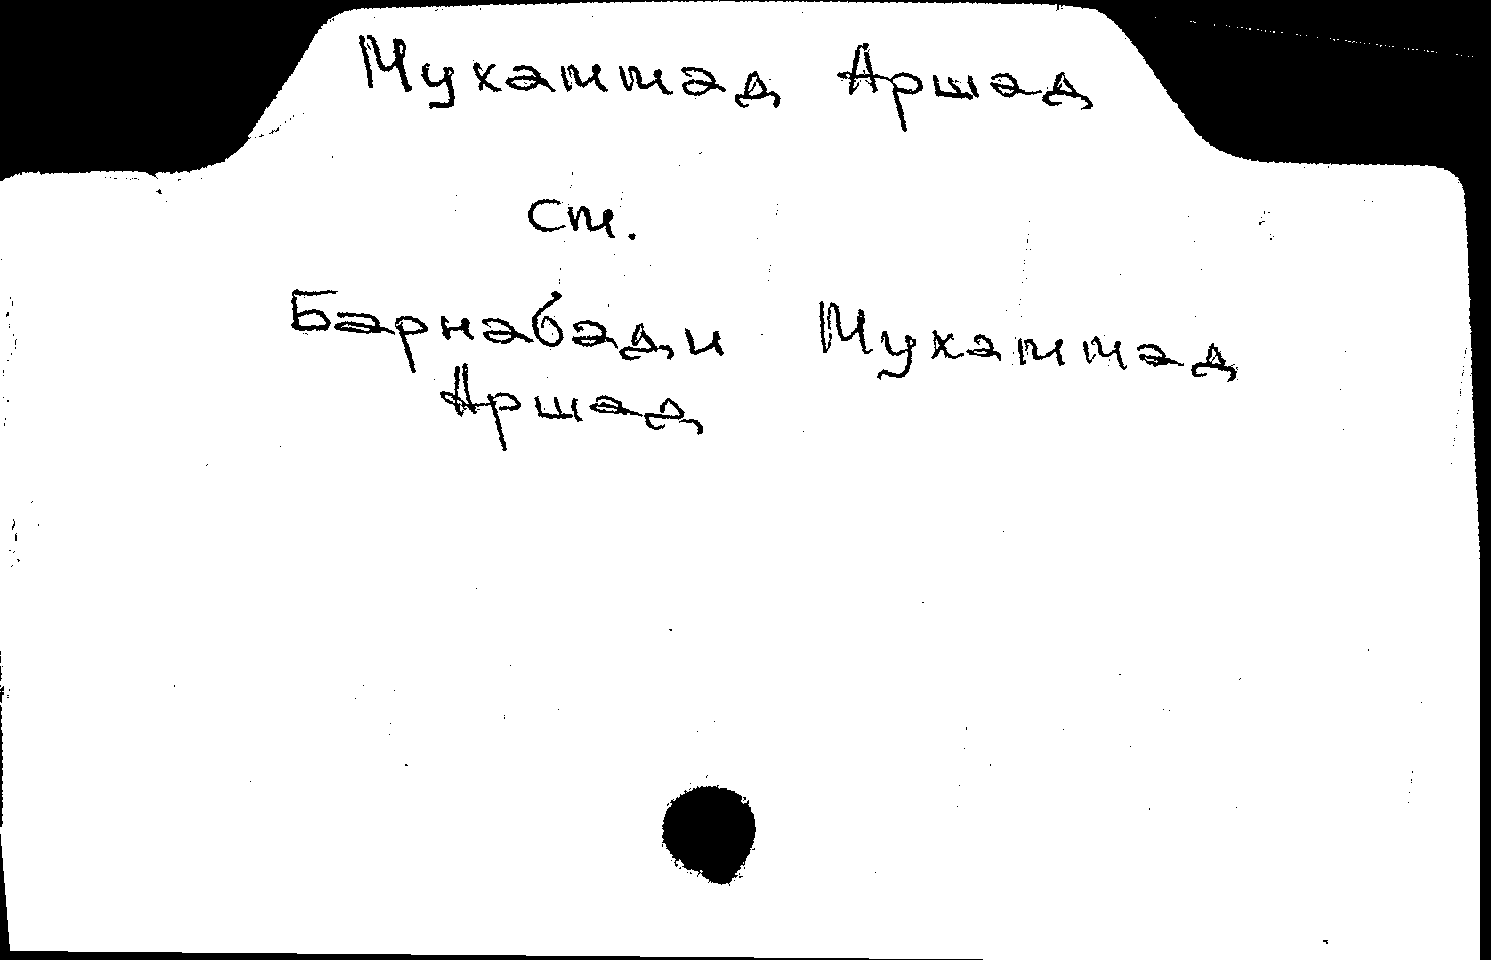 Мухаммад Аршад
см.
Барнабади Мухаммад
Аршад